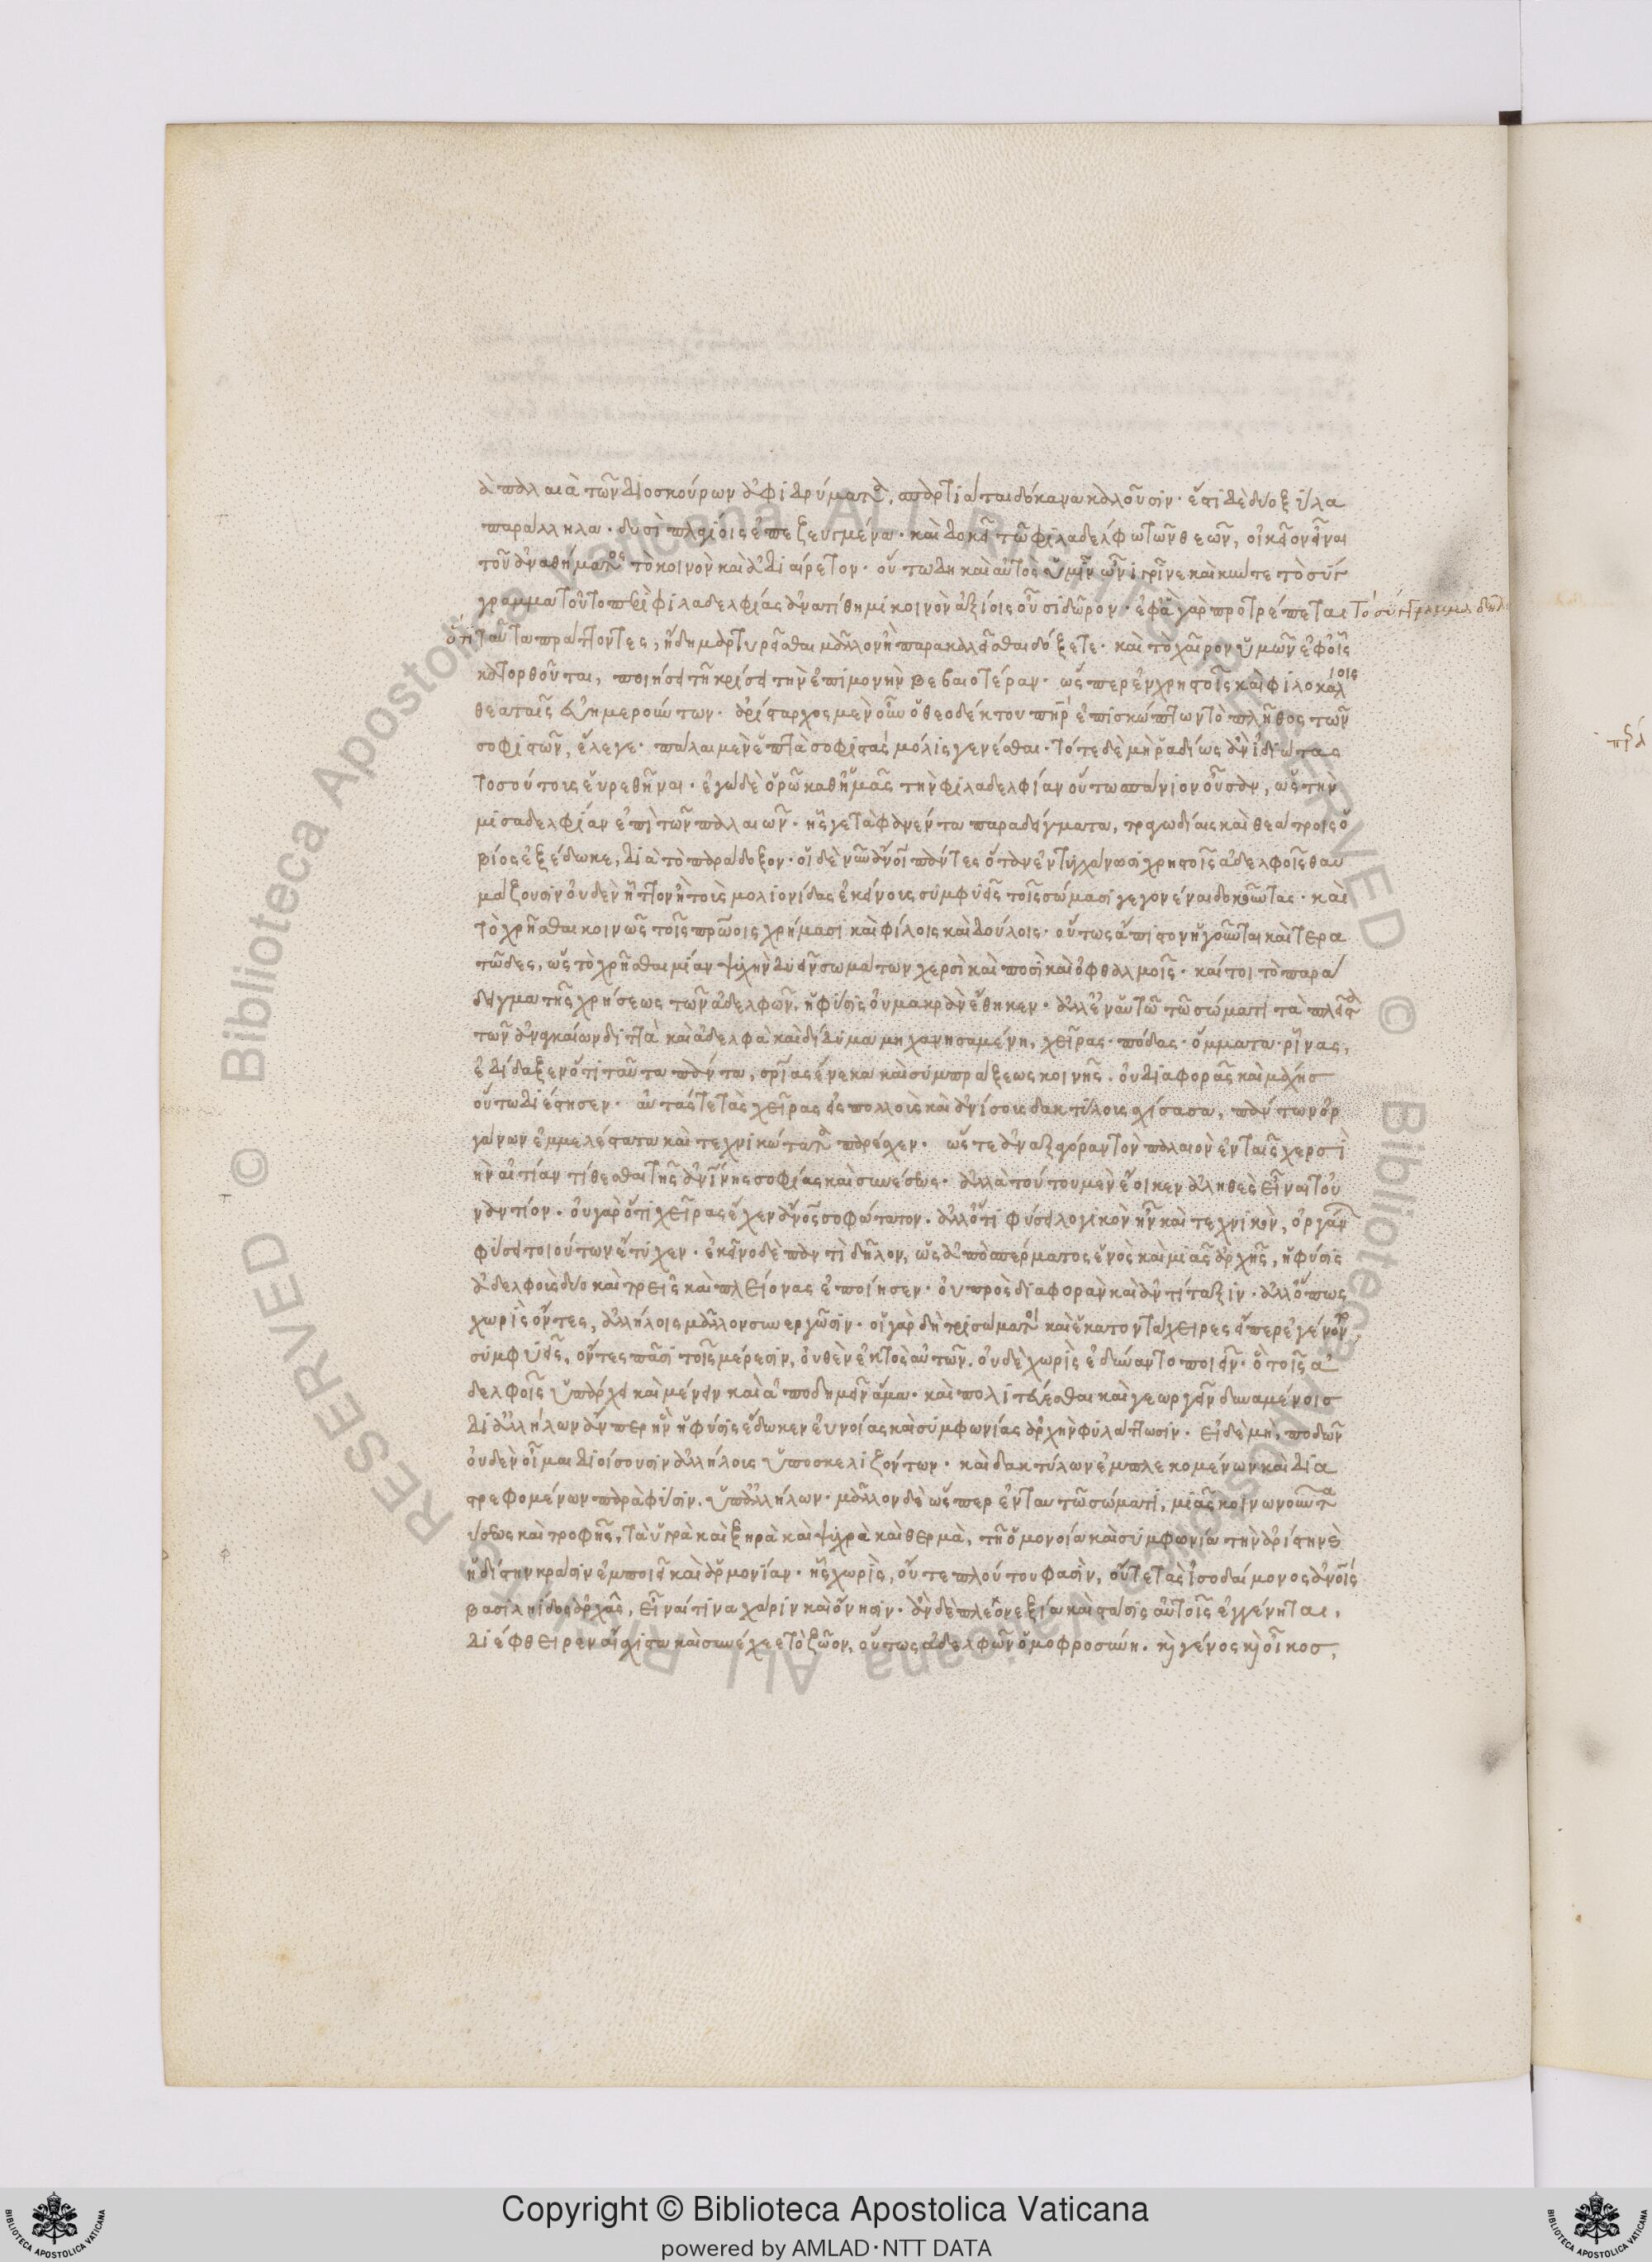 ὰ παλαιὰ τῶν διοσκούρων ἀφιδρύματα, σπαρτιάται δόκανα καλοῦσιν· ἔστι δὲ δύο ξύλα
παράλληλα· δυσὶ πλαγίοις ἐπεζευγμένα· καὶ δοκεῖ τῶ φιλαδέλφω τῶν θεῶν, οἰκεῖον εἶναι
τοῦ ἀναθήματος τὸ κοινὸν καὶ ἀδιαίρετον· οὕτω δὴ καὶ αὐτὸς ὑμῖν ὦ νιγρῖνε καὶ κυῆτε τὸ σύγ
γραμμα τοῦτο περὶ φιλαδελφίας ἀνατίθημι κοινὸν ἀξίοις οὖσι δῶρον· ἐφ᾽ ἃ γὰρ προτρέπεται τὸ σύγγραμμα
ὅτι ταῦτα πράττοντες, ἤδη μαρτυρεῖσθαι μᾶλλον ἢ παρακαλεῖσθαι δόξετε· καὶ τὸ χαῖρον ὑμῶν ἐφ᾽ οἷς
κατορθοῦται, ποιήσει τῆ κρίσει τὴν ἐπιμονὴν βεβαιοτέραν· ὥσπερ ἐν χρηστοῖς καὶ φιλοκάλοις
θεαταῖς εὐημερούντων· ἀρίσταρχος μὲν οὖν ὁ θεοδέκτου πατὴρ ἐπισκώπτων τὸ πλῆθος τῶν
σοφιστῶν, ἔλεγε· πάλαι μὲν ἑπτὰ σοφιστὰς μόλις γενέσθαι· τότε δὲ μὴ ῥαδίως ἂν ἰδιώτας
τοσούτους εὑρεθῆναι· ἐγὼ δὲ ὁρῶ καθ᾽ ἡμᾶς τὴν φιλαδελφίαν οὕτω σπάνιον οὖσαν, ὡς τὴν
μισαδελφίαν ἐπὶ τῶν παλαιῶν· ἧς γε τὰ φανέντα παραδείγματα, τραγωδίαις καὶ θεάτροις ὁ
βίος ἐξέδωκε, διὰ τὸ παράδοξον· οἱ δὲ νῦν ἄνθρωποι πάντες ὅταν ἐντύχωσι χρηστοῖς ἀδελφοῖς θαυ
μάζουσιν οὐδὲν ἧττον ἢ τοὺς μολιονίδας ἐκείνους συμφυεῖς τοῖς σώμασι γεγονέναι δοκοῦντας· καὶ
τὸ χρῆσθαι κοινῶς τοῖς πατρώοις χρήμασι καὶ φίλοις καὶ δούλοις· οὕτως ἄπιστον ἡγοῦνται καὶ τερα
τῶδες, ὡς τὸ χρῆσθαι μίαν ψυχὴν δυεῖν σωμάτων χερσὶ καὶ ποσὶ καὶ ὀφθαλμοῖς· καίτοι τὸ παρά
δειγμα τῆς χρήσεως τῶν ἀδελφῶν, ἡ φύσις οὐ μακρὰν ἔθηκεν· ἀλλ᾽ ἐν αὐτῶ τῶ σώματι τὰ πλεῖστα
τῶν ἀναγκαίων διττὰ καὶ ἀδελφὰ καὶ δίδυμα μηχανησαμένη, χεῖρας· πόδας· ὄμματα· ῥῖνας,
ἐδίδαξεν ὅτι ταῦτα πάντα, σωτηρίας ἕνεκα καὶ συμπράξεως κοινῆς. οὐ διαφορᾶς καὶ μάχης
οὕτω διέστησεν· αὐτάς τε τὰς χεῖρας εἰς πολλοὺς καὶ ἀνίσους δακτύλους σχίσασα, πάντων ὀρ
γάνων ἐμμελέστατα καὶ τεχνικώτατα παρέσχεν· ὥστε ἀναξαγόραν τὸν παλαιὸν ἐν ταῖς χερσὶ τὴν
ὴν αἰτίαν τίθεσθαι τῆς ἀνθρωπίνης σοφίας καὶ συνέσεως· ἀλλὰ τούτου μὲν ἔοικεν ἀληθὲς εἶναι τοὐ
ναντίον· οὐ γὰρ ὅτι χεῖρας ἔσχεν ἄνθρωπος σοφώτατον· ἀλλ᾽ ὅτι φύσει λογικὸν ἦν καὶ τεχνικὸν, ὀργάνων
φύσει τοιούτων ἔτυχεν· ἐκεῖνο δὲ παντὶ δῆλον, ὡς ἀπὸ σπέρματος ἑνὸς καὶ μιᾶς ἀρχῆς, ἡ φύσις
ἀδελφοὺς δύο καὶ τρεῖς καὶ πλείονας ἐποίησεν· οὐ πρὸς διαφορὰν καὶ ἀντίταξιν· ἀλλ᾽ ὅπως
χωρὶς ὄντες, ἀλλήλοις μᾶλλον συνεργῶσιν· οἱ γὰρ δὴ τρισώματοι καὶ ἑκατοντάχειρες εἴπερ ἐγένοντο
συμφυεῖς, ὄντες πᾶσι τοῖς μέρεσιν, οὐθὲν ἐκτὸς αὑτῶν. οὐδὲ χωρὶς ἐδύναντο ποιεῖν· ὃ τοῖς ἀ
δελφοῖς ὑπάρχει καὶ μένειν καὶ ἀποδημεῖν ἅμα· καὶ πολιτεύεσθαι καὶ γεωργεῖν δυναμένοις
δι᾽ ἀλλήλων ἄνπερ ἣν ἡ φύσις ἔδωκεν εὐνοίας καὶ συμφωνίας ἀρχὴν φυλάττωσιν· εἰ δὲ μὴ, ποδῶν
οὐδὲν οἶμαι διοίσουσιν ἀλλήλους ὑποσκελιζόντων· καὶ δακτύλων ἐμπλεκομένων καὶ δια
στρεφομένων παρὰ φύσιν. ὑπ᾽ ἀλλήλων· μᾶλλον δὲ ὥσπερ ἐν ταυτῶ σώματι, μιᾶς κοινωνοῦντα
ύσεως καὶ τροφῆς, τὰ ὑγρὰ καὶ ξηρὰ καὶ ψυχρὰ καὶ θερμὰ, τῆ ὁμονοία καὶ συμφωνία τὴν ἀρίστην καὶ
ἡδίστην κρᾶσιν ἐμποιεῖ καὶ ἁρμονίαν· ἧς χωρὶς, οὔτε πλούτου φασὶν, οὔτε τὰς ἰσοδαίμονος ἀνθρώποις
βασιληίδος ἀρχᾶς, εἶναί τινα χάριν καὶ ὄνησιν· ἂν δὲ πλεονεξία καὶ στάσις αὐτοῖς ἐγγένηται,
διέφθειρεν αἴσχιστα καὶ συνέχεε τὸ ζῶον, οὕτως ἀδελφῶν ὁμοφροσύνη. κỳ γένος κỳ οἶκος,
Copyright © Biblioteca Apostolica Vaticana
powered by AMLAD·NTT DATA